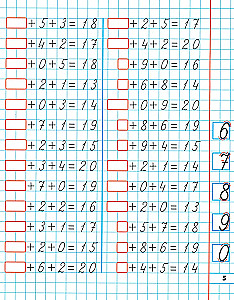 +5+3=18 +2+5=17
+4+2=17 +4+2=20
+0+5=18 +9+0=16
+2+1=13 +6+8=14
+0+3=14 +0+9=20
+7+1=19 +8+6=19
+2+3=15 +9+4=15
+3+4=20 +2+1=14
+7+0=19 +0+4=17
+2+2=16 +2+0=13
+3+1=17 +5+7=18
+2+0=15 +8+6=19
+6+2=20 +4+5=14
6
7
8
9
0
5